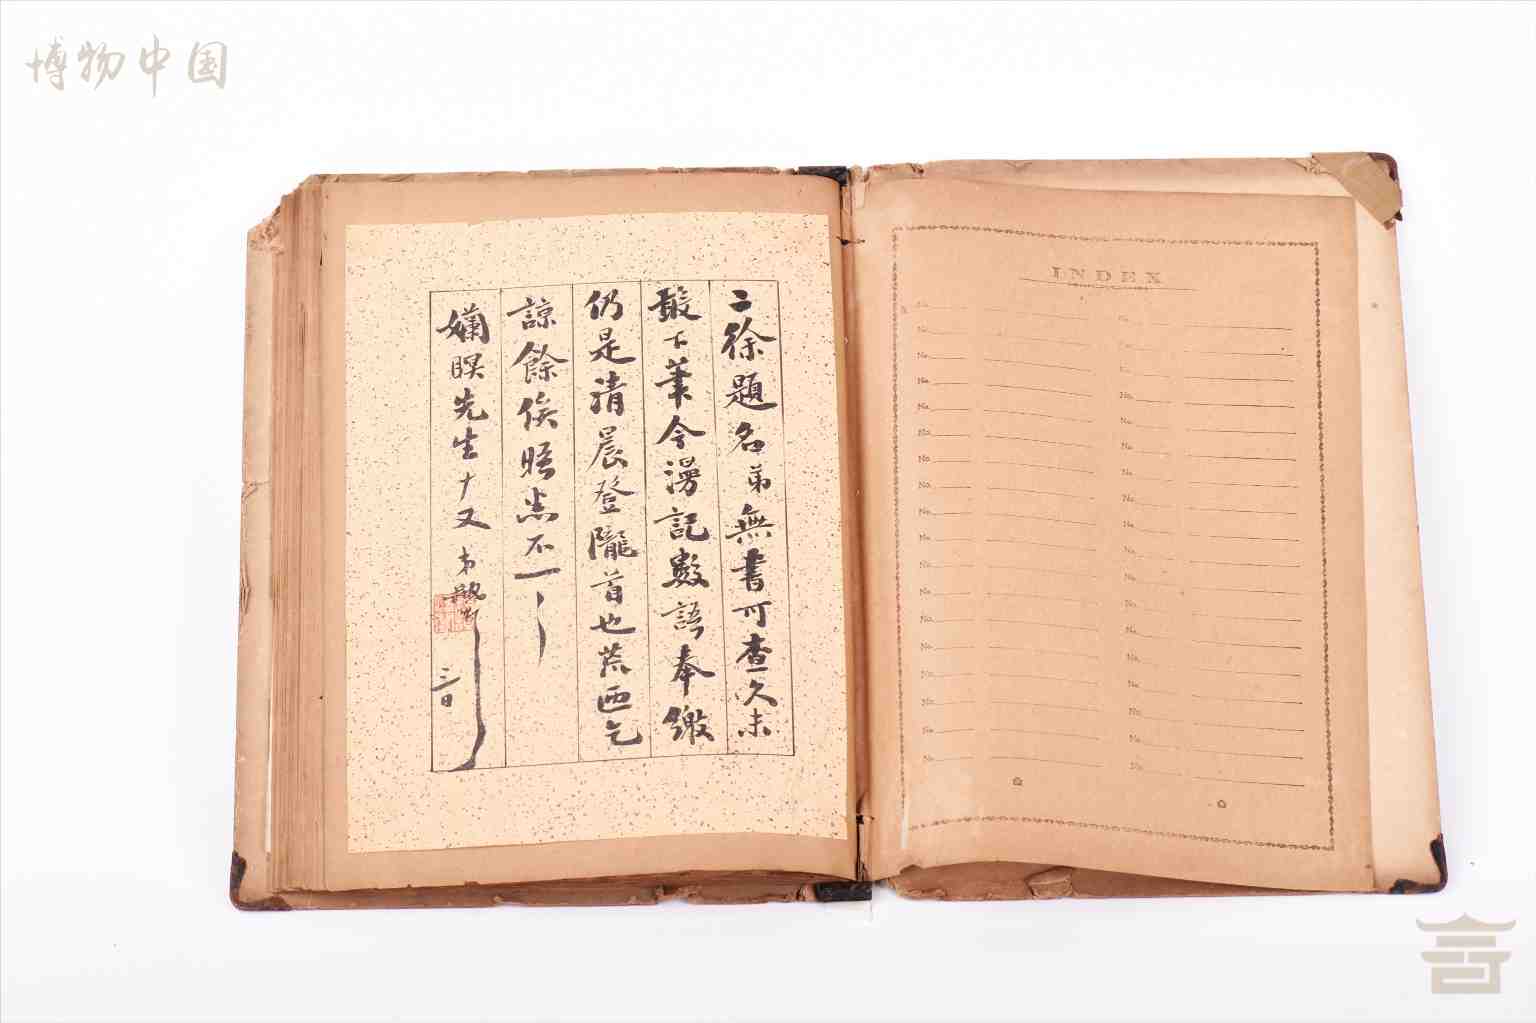 博物中国
二徐題名弟無書可查久未
敢下筆今漫記數語奉繳
仍是清晨登隴首也荒陋乞
諒餘俟晤悉不一一
嬾瞑先生 弟
三日
INDEX
No. No.
No. No.
No. No.
No. No.
No. No.
No. No.
No. No.
No. No.
No. No.
No. No.
No. No.
No. No.
No. No.
No. No.
No. No.
No. No.
No. No.
No. No.